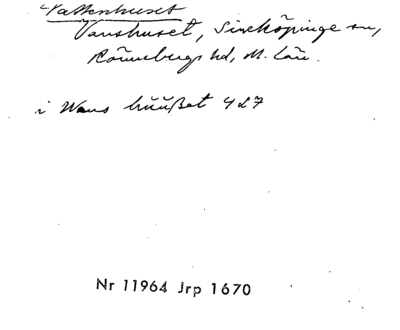 Vattenhuset
Vanshuset, Sireköpinge sn,
Rönnebergs hd, M. län.
i Wans húúßet 427
Nr 11964 Jrp 1670